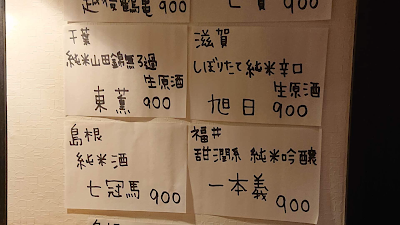 越後鶴亀 900
900
千葉
純米山田錦無ろ過
生原酒
東薫 900
滋賀
しぼりたて純米辛口
生原酒
旭日 900
島根
純米酒
七冠馬 900
福井
甜潤系 純米吟醸
一本義 900